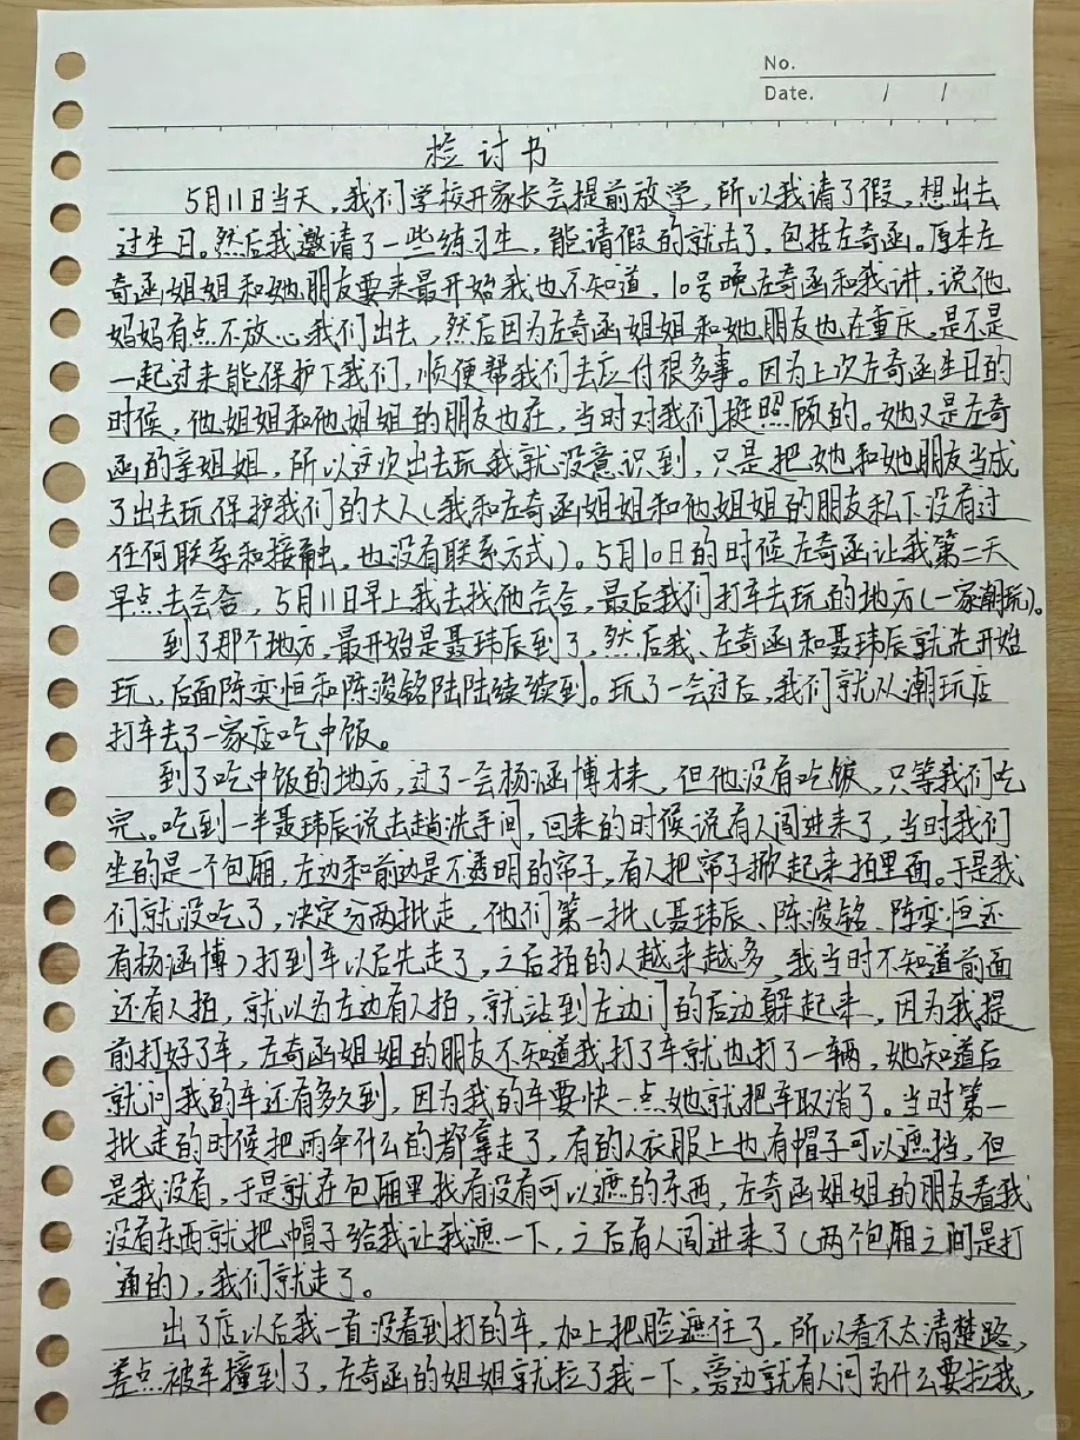 No.
Date. / /
检讨书
5月11日当天，我们学校开家长会提前放学，所以我请了假，想出去
过生日。然后我邀请了一些练习生，能请假的就去了，包括左奇函。原本左
奇函姐姐和她朋友要来最开始我也不知道，10号晚左奇函和我讲，说他
妈妈有点不放心我们出去，然后因为左奇函姐姐和她朋友也在重庆，是不是
一起过来能保护下我们，顺便帮我们去应付很多事。因为上次左奇函生日的
时候，他姐姐和他姐姐的朋友也在，当时对我们挺照顾的。她又是左奇
函的亲姐姐，所以这次出去玩我就没意识到，只是把她和她朋友当成
了出去玩保护我们的大人（我和左奇函姐姐和他姐姐的朋友私下没有过
任何联系和接触，也没有联系方式）。5月10日的时候左奇函让我第二天
早点去会合，5月11日早上我去找他会合，最后我们打车去玩的地方（一家潮玩）。
到了那个地方，最开始是聂玮辰到了，然后我、左奇函和聂玮辰就先开始
玩，后面陈奕恒和陈浚铭陆陆续续到。玩了一会过后，我们就从潮玩店
打车去了一家店吃中饭。
到了吃中饭的地方，过了一会杨涵博才来，但他没有吃饭，只等我们吃
完。吃到一半聂玮辰说去趟洗手间，回来的时候说有人闯进来了，当时我们
坐的是一个包厢，左边和前边是不透明的帘子，有人把帘子掀起来拍里面。于是我
们就没吃了，决定分两批走，他们第一批（聂玮辰、陈浚铭、陈奕恒还
有杨涵博）打到车以后先走了，之后拍的人越来越多，我当时不知道前面
还有人拍，就以为左边有人拍，就站到左边门的后边躲起来，因为我提
前打好了车，左奇函姐姐的朋友不知道我打了车就也打了一辆，她知道后
就问我的车还有多久到，因为我的车要快一点她就把车取消了。当时第一
批走的时候把雨伞什么的都拿走了，有的人衣服上也有帽子可以遮挡，但
是我没有，于是就在包厢里找有没有可以遮的东西，左奇函姐姐的朋友看我
没有东西就把帽子给我让我遮一下，之后有人闯进来了（两个包厢之间是打
通的），我们就走了。
出了店以后我一直没看到打的车，加上把脸遮住了，所以看不太清楚路，
差点被车撞到了，左奇函的姐姐就拉了我一下，旁边就有人问为什么要拉我，